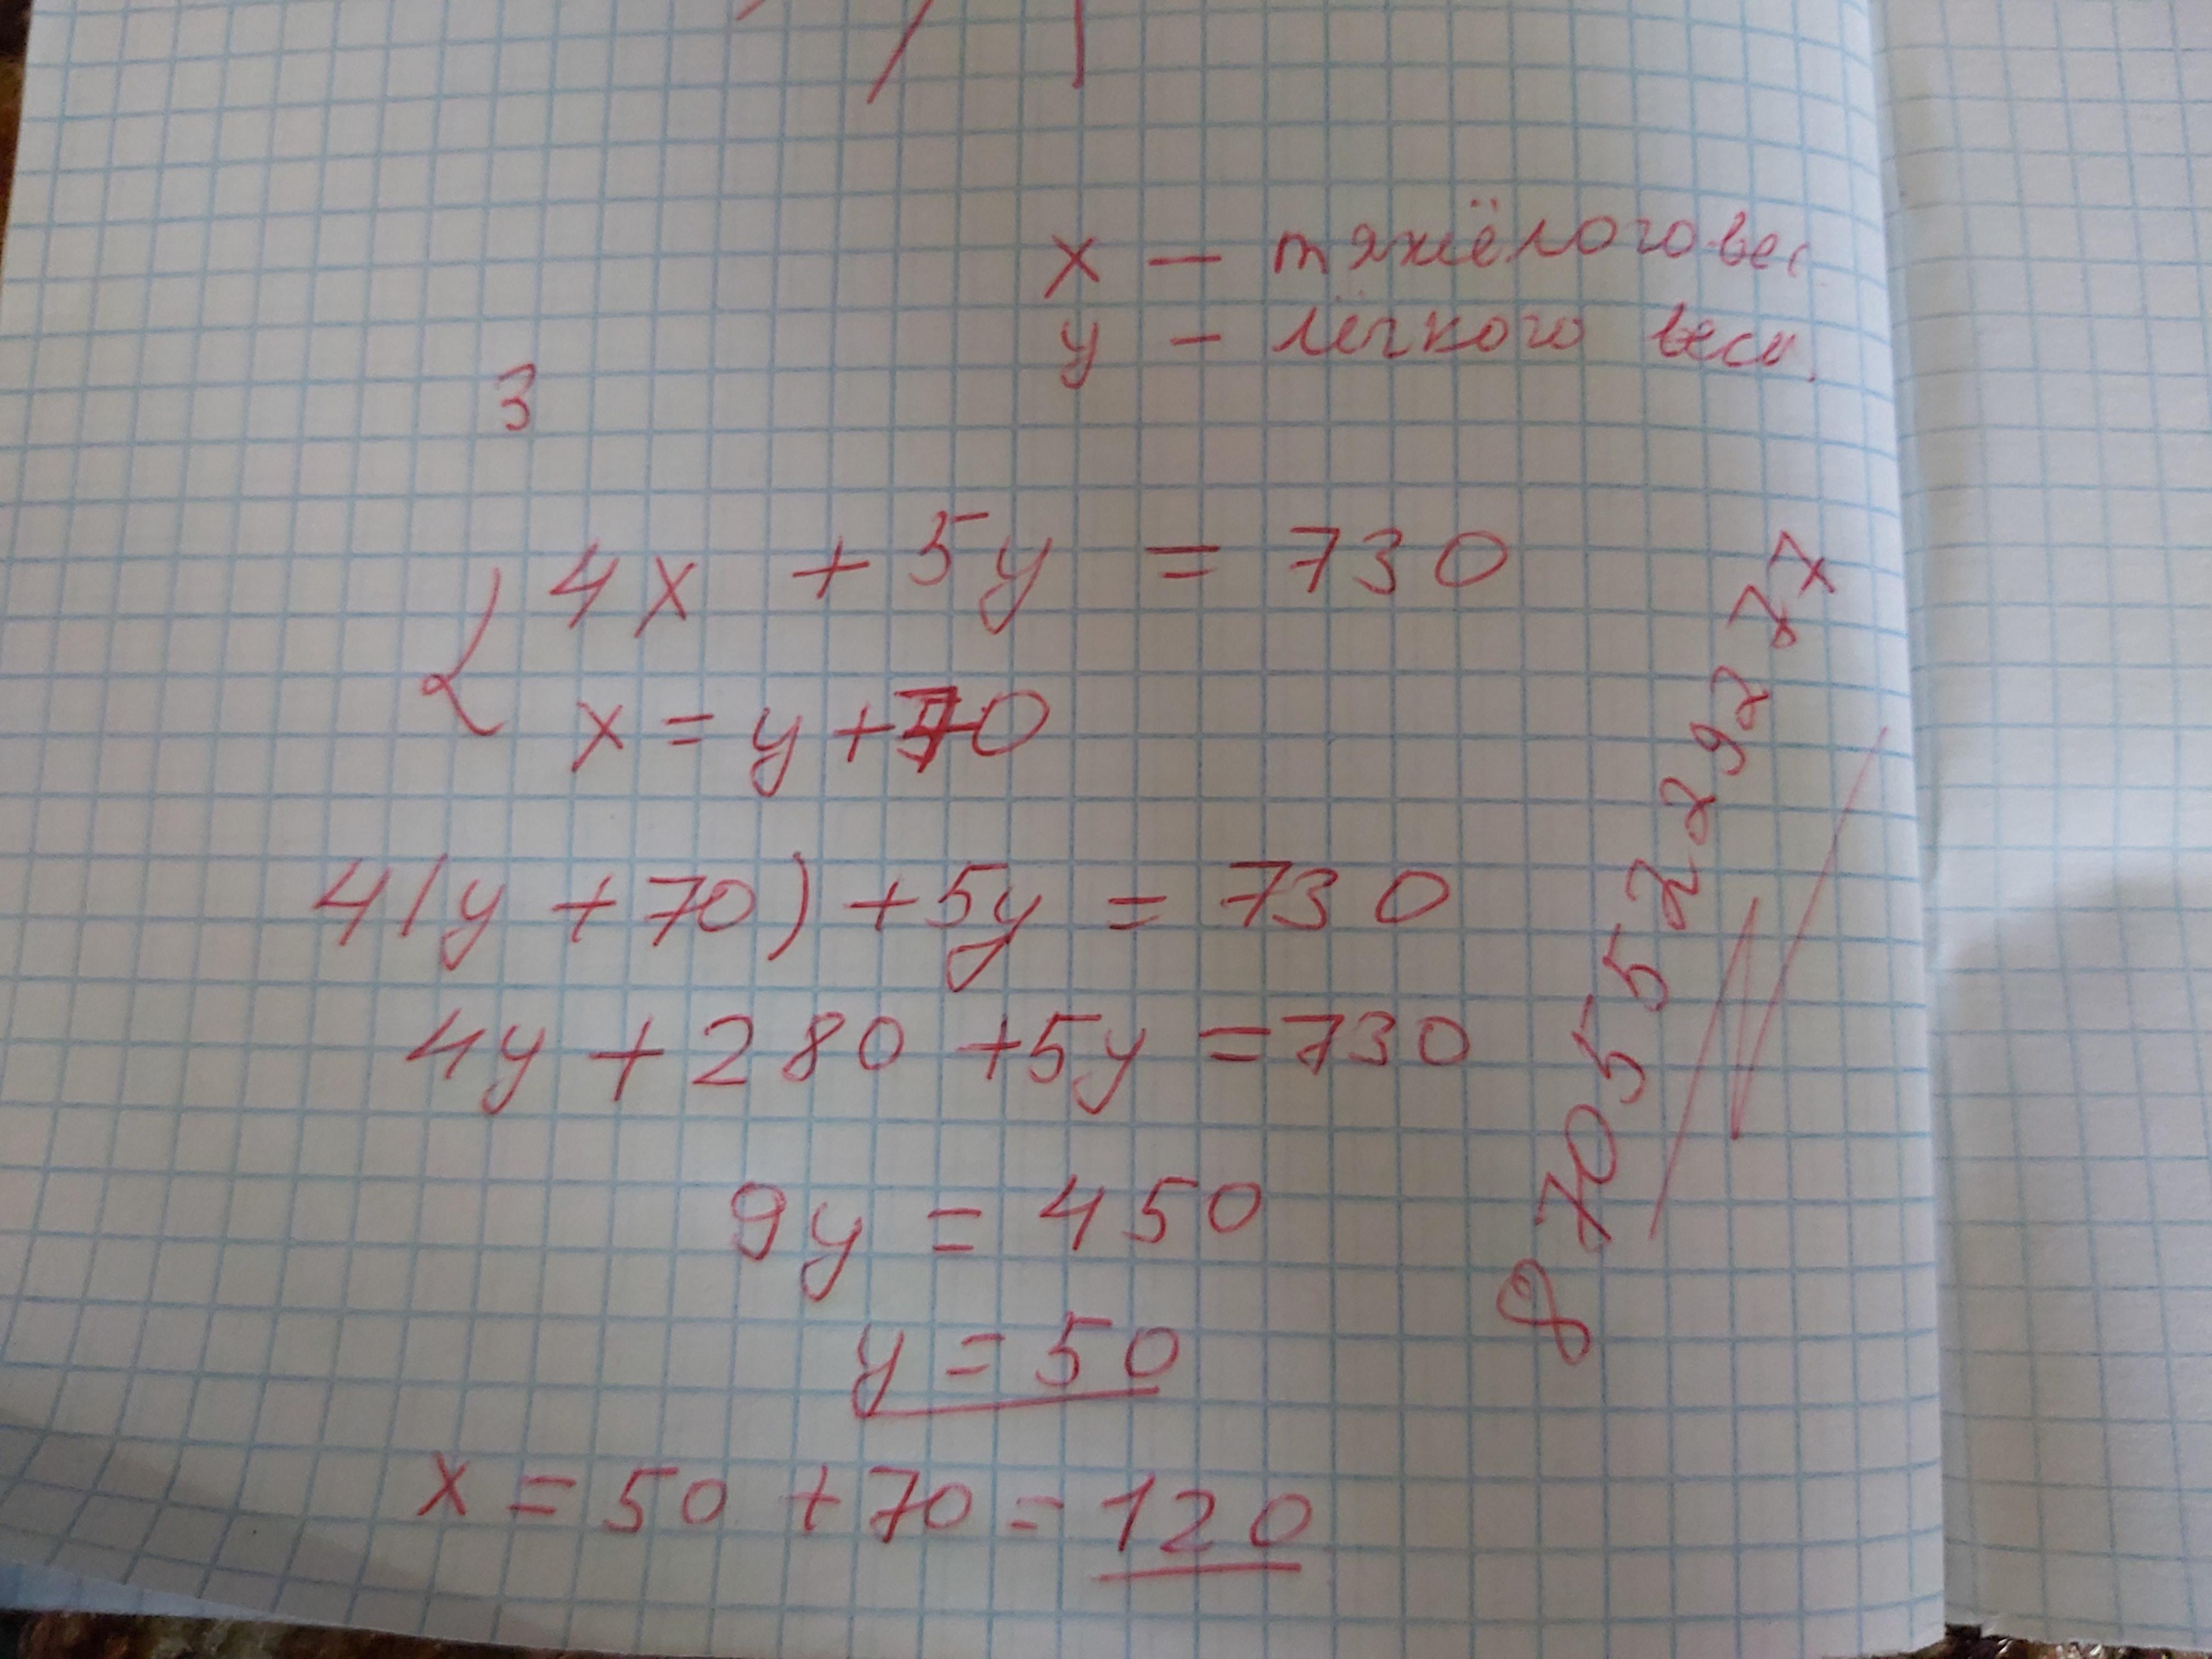 x – тяжёлого вес
y – лёгкого веса.
3
4x + 5y = 730
x = y + 70
4(y + 70) + 5y = 730
4y + 280 + 5y = 730
9y = 450
y = 50
x = 50 + 70 = 120